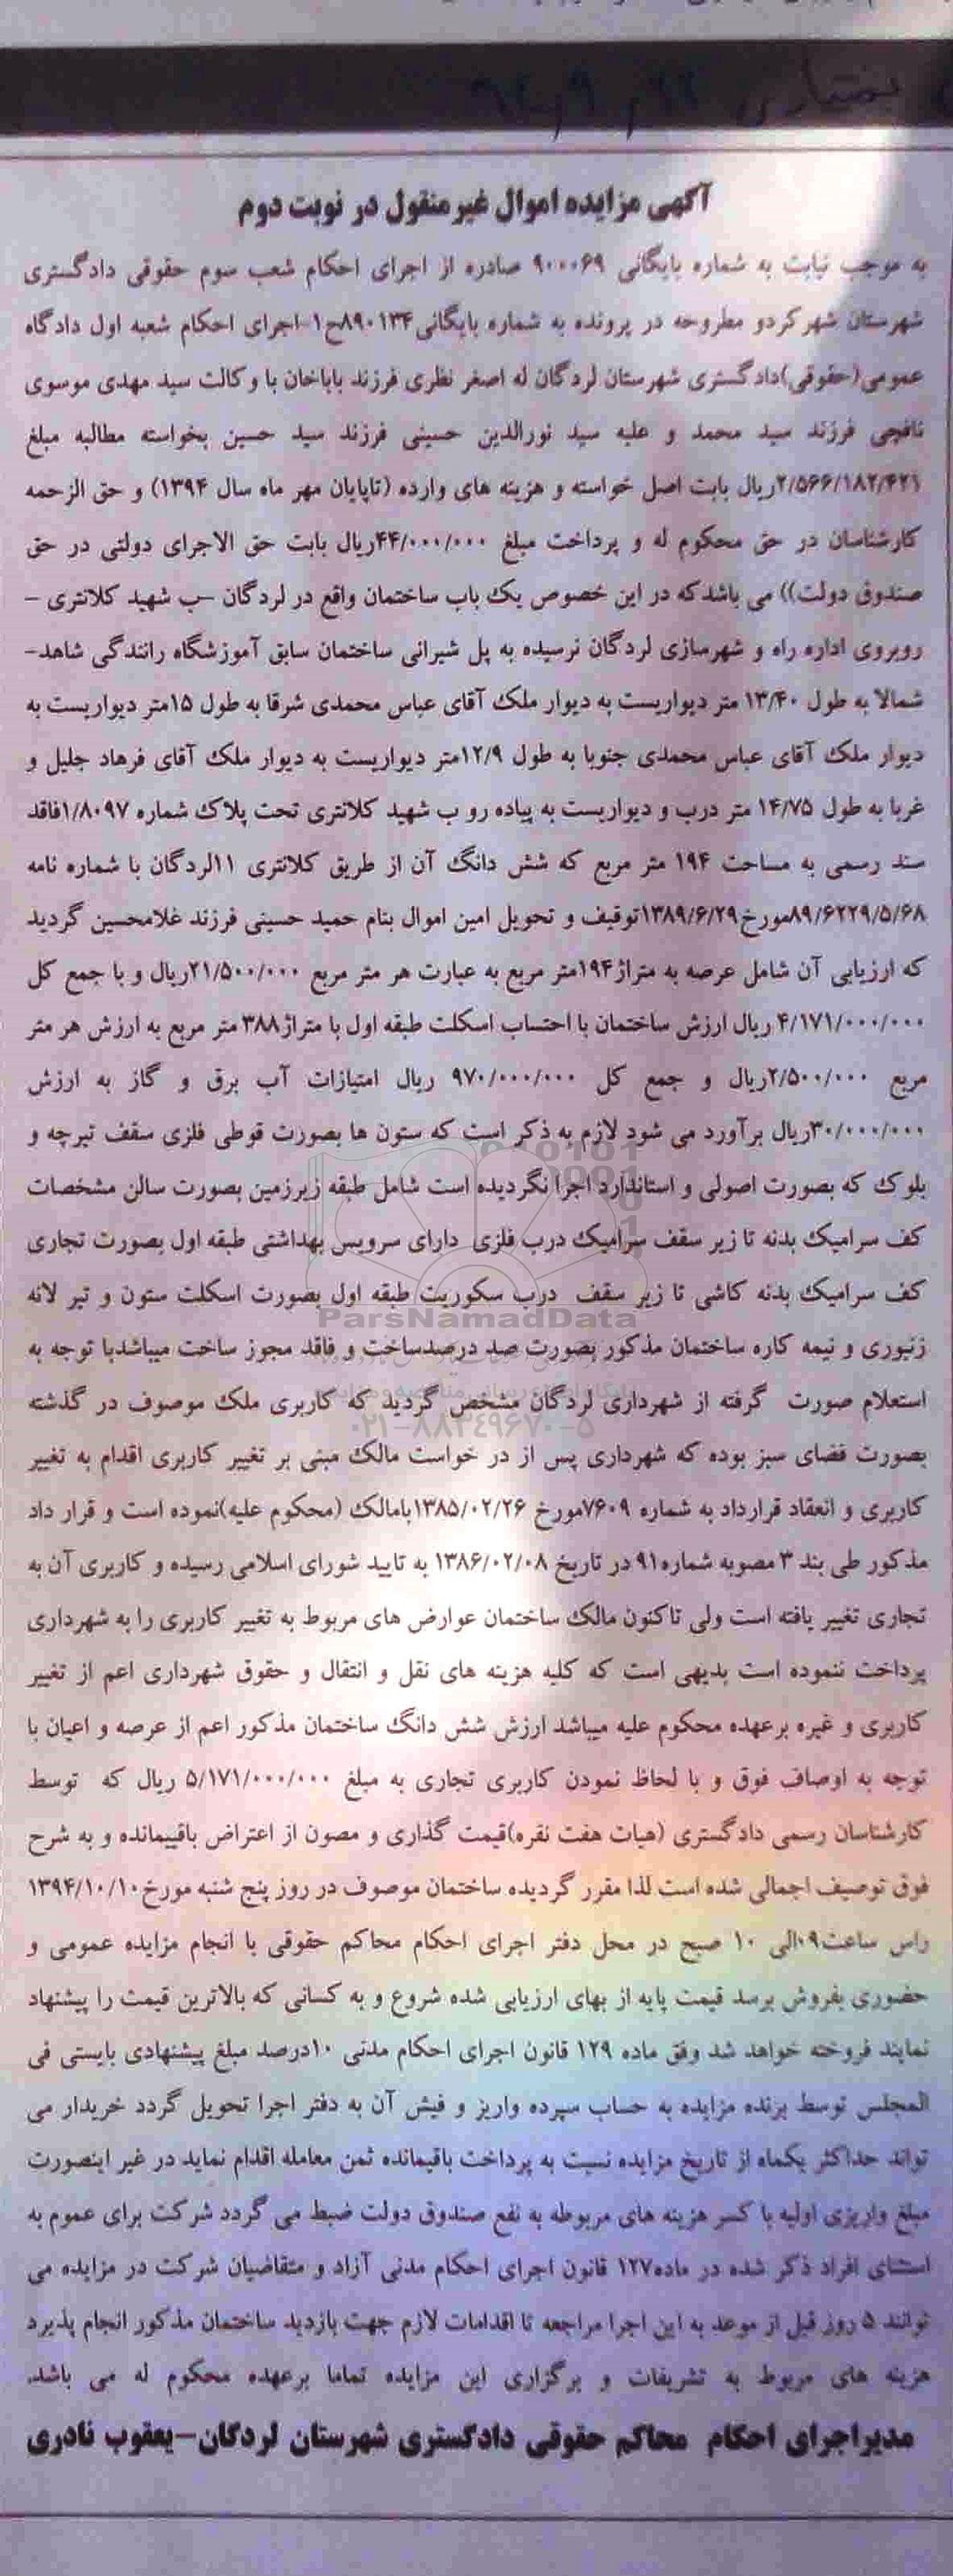 آگهی مزایده اموال غیرمنقول در نوبت دوم
به موجب نیابت به شماره بایگانی ۹۰۰۰۶۹ صادره از اجرای احکام شعب سوم حقوقی دادگستری
شهرستان شهرکردو مطروحه در پرونده به شماره بایگانی۸۹۰۱۳۴ج۱-اجرای احکام شعبه اول دادگاه
عمومی(حقوقی)دادگستری شهرستان لردگان له اصغر نظری فرزند باباخان با وکالت سید مهدی موسوی
نافچی فرزند سید محمد و علیه سید نورالدین حسینی فرزند سید حسین بخواسته مطالبه مبلغ
۲/۵۶۶/۱۸۲/۴۲۱ریال بابت اصل خواسته و هزینه های وارده (تاپایان مهر ماه سال ۱۳۹۴) و حق الزحمه
کارشناسان در حق محکوم له و پرداخت مبلغ ۴۴/۰۰۰/۰۰۰ریال بابت حق الاجرای دولتی در حق
صندوق دولت)) می باشدکه در این خصوص یک باب ساختمان واقع در لردگان –ب شهید کلانتری –
روبروی اداره راه و شهرسازی لردگان نرسیده به پل شیرانی ساختمان سابق آموزشگاه رانندگی شاهد-
شمالا به طول ۱۳/۴۰ متر دیواریست به دیوار ملک آقای عباس محمدی شرقا به طول ۱۵متر دیواریست به
دیوار ملک آقای عباس محمدی جنوبا به طول ۱۲/۹متر دیواریست به دیوار ملک آقای فرهاد جلیل و
غربا به طول ۱۴/۷۵ متر درب و دیواریست به پیاده رو ب شهید کلانتری تحت پلاک شماره ۱/۸۰۹۷فاقد
سند رسمی به مساحت ۱۹۴ متر مربع که شش دانگ آن از طریق کلانتری ۱۱لردگان با شماره نامه
۸۹/۶۲۲۹/۵/۶۸مورخ۱۳۸۹/۶/۲۹توقیف و تحویل امین اموال بنام حمید حسینی فرزند غلامحسین گردید
که ارزیابی آن شامل عرصه به متراژ۱۹۴متر مربع به عبارت هر متر مربع ۲۱/۵۰۰/۰۰۰ریال و با جمع کل
۴/۱۷۱/۰۰۰/۰۰۰ ریال ارزش ساختمان با احتساب اسکلت طبقه اول با متراژ۳۸۸ متر مربع به ارزش هر متر
مربع ۲/۵۰۰/۰۰۰ریال و جمع کل ۹۷۰/۰۰۰/۰۰۰ ریال امتیازات آب برق و گاز به ارزش
۳۰/۰۰۰/۰۰۰ریال برآورد می شود لازم به ذکر است که ستون ها بصورت قوطی فلزی سقف تیرچه و
بلوک که بصورت اصولی و استاندارد اجرا نگردیده است شامل طبقه زیرزمین بصورت سالن مشخصات
کف سرامیک بدنه تا زیر سقف سرامیک درب فلزی دارای سرویس بهداشتی طبقه اول بصورت تجاری
کف سرامیک بدنه کاشی تا زیر سقف درب سکوریت طبقه اول بصورت اسکلت ستون و تیر لانه
ParsNamadData
زنبوری و نیمه کاره ساختمان مذکور بصورت صد درصدساخت و فاقد مجوز ساخت میباشدبا توجه به
استعلام صورت گرفته از شهرداری لردگان مشخص گردید که کاربری ملک موصوف در گذشته
۰۲۱-۸۸۳۴۹۶۷۰-۵
بصورت فضای سبز بوده که شهرداری پس از در خواست مالک مبنی بر تغییر کاربری اقدام به تغییر
کاربری و انعقاد قرارداد به شماره ۷۶۰۹مورخ ۱۳۸۵/۰۲/۲۶بامالک (محکوم علیه)نموده است و قرار داد
مذکور طی بند ۳ مصوبه شماره۹۱ در تاریخ ۱۳۸۶/۰۲/۰۸ به تایید شورای اسلامی رسیده و کاربری آن به
تجاری تغییر یافته است ولی تاکنون مالک ساختمان عوارض های مربوط به تغییر کاربری را به شهرداری
پرداخت ننموده است بدیهی است که کلیه هزینه های نقل و انتقال و حقوق شهرداری اعم از تغییر
کاربری و غیره برعهده محکوم علیه میباشد ارزش شش دانگ ساختمان مذکور اعم از عرصه و اعیان با
توجه به اوصاف فوق و با لحاظ نمودن کاربری تجاری به مبلغ ۵/۱۷۱/۰۰۰/۰۰۰ ریال که توسط
کارشناسان رسمی دادگستری (هیات هفت نفره)قیمت گذاری و مصون از اعتراض باقیمانده و به شرح
فوق توصیف اجمالی شده است لذا مقرر گردیده ساختمان موصوف در روز پنج شنبه مورخ۱۳۹۴/۱۰/۱۰
راس ساعت۰۹الی ۱۰ صبح در محل دفتر اجرای احکام محاکم حقوقی با انجام مزایده عمومی و
حضوری بفروش برسد قیمت پایه از بهای ارزیابی شده شروع و به کسانی که بالاترین قیمت را پیشنهاد
نمایند فروخته خواهد شد وفق ماده ۱۲۹ قانون اجرای احکام مدنی ۱۰درصد مبلغ پیشنهادی بایستی فی
المجلس توسط برنده مزایده به حساب سپرده واریز و فیش آن به دفتر اجرا تحویل گردد خریدار می
تواند حداکثر یکماه از تاریخ مزایده نسبت به پرداخت باقیمانده ثمن معامله اقدام نماید در غیر اینصورت
مبلغ واریزی اولیه با کسر هزینه های مربوطه به نفع صندوق دولت ضبط می گردد شرکت برای عموم به
استثنای افراد ذکر شده در ماده۱۲۷ قانون اجرای احکام مدنی آزاد و متقاضیان شرکت در مزایده می
توانند ۵ روز قبل از موعد به این اجرا مراجعه تا اقدامات لازم جهت بازدید ساختمان مذکور انجام پذیرد
هزینه های مربوط به تشریفات و برگزاری این مزایده تماما برعهده محکوم له می باشد.
مدیراجرای احکام محاکم حقوقی دادگستری شهرستان لردگان-یعقوب نادری